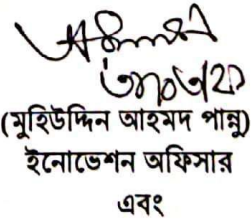 (মুহিউদ্দিন আহমদ পান্নু)
ইনোভেশন অফিসার
এবং